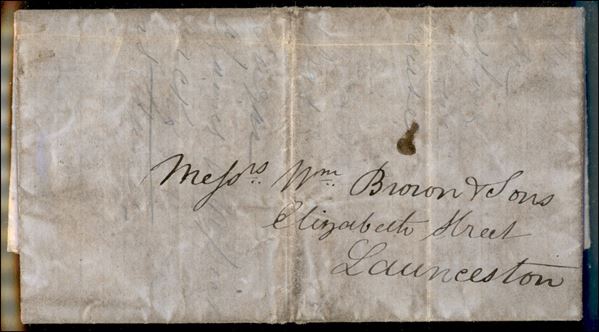 Messrs. Wm. Brown & Sons
Elizabeth Street
Launceston